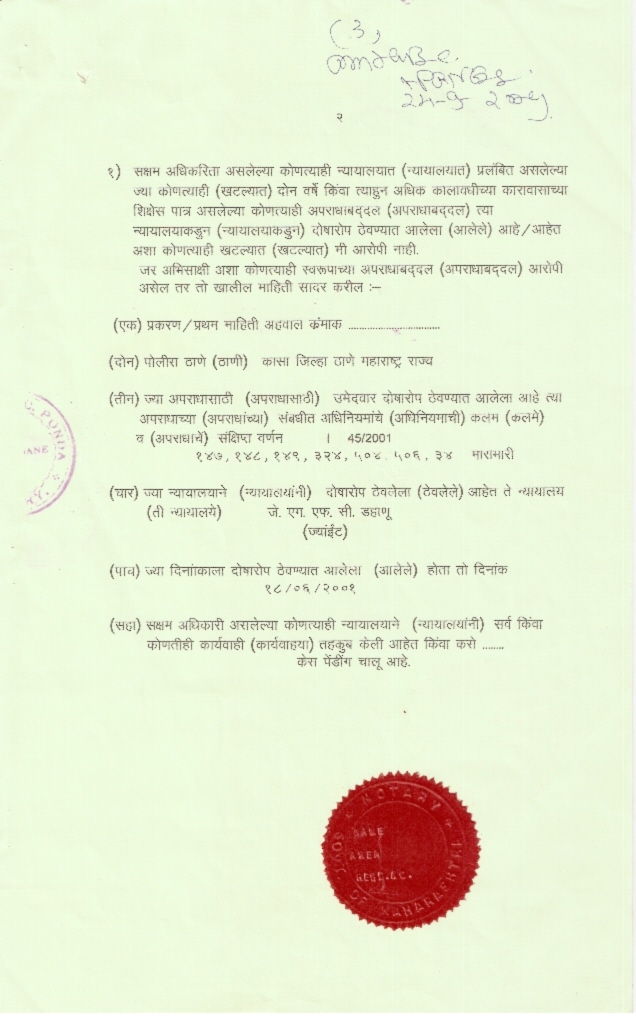 (3)
24-9 2004
२
१) सक्षम अधिकरिता असलेल्या कोणत्याही न्यायालयात (न्यायालयात) प्रलंबित असलेल्या
ज्या कोणत्याही (खटल्यात) दोन वर्षे किंवा त्याहुन अधिक कालावधीच्या कारावासाच्या
शिक्षेस पात्र असलेल्या कोणत्याही अपराधाबद्दल (अपराधाबद्दल) त्या
न्यायालयाकडुन (न्यायालयाकडुन) दोषारोप ठेवण्यात आलेला (आलेले) आहे/आहेत
अशा कोणत्याही खटल्यात (खटल्यात) मी आरोपी नाही.
जर अभिसाक्षी अशा कोणत्याही स्वरूपाच्या अपराधाबद्दल (अपराधाबद्दल) आरोपी
असेल तर तो खालील माहिती सादर करील :–
(एक) प्रकरण/प्रथम माहिती अहवाल क्रंमाक ................................
(दोन) पोलीरा ठाणे (ठाणी) कासा जिल्हा ठाणे महाराष्ट्र राज्य
(तीन) ज्या अपराधासाठी (अपराधासाठी) उमेदवार दोषारोप ठेवण्यात आलेला आहे त्या
अपराधाच्या (अपराधांच्या) संबंधीत अधिनियमांचे (अधिनियमाची) कलम (कलमे)
व (अपराधाचें) संक्षिप्ता वर्णन । 45/2001
१४७, १४८, १४९, ३२४, ५०४. ५०६, ३४ मारामारी
(चार) ज्या न्यायालयाने (न्यायालयांनी) दोषारोप ठेवलेला (ठेवलेले) आहेत ते न्यायालय
(ती न्यायालये) जे. एग. एफ. सी. डहाणू
(ज्याईंट)
(पाच) ज्या दिनांाकाला दोषारोप ठेवण्यात आलेला (आलेले) होता तो दिनांक
१८/०६/२००१
(सहा) सक्षम अधिकारी अरालेल्या कोणत्याही न्यायालयाने (न्यायालयांनी) सर्व किंवा
कोणतीही कार्यवाही (कार्यवाहया) तहकुब केली आहेत किंवा करो ........
केरा पेंडींग चालू आहे.
PONIA
ANE
NOTARY
GOVT. OF MAHARASHTRA
NAME
AREA
REGD.NO.